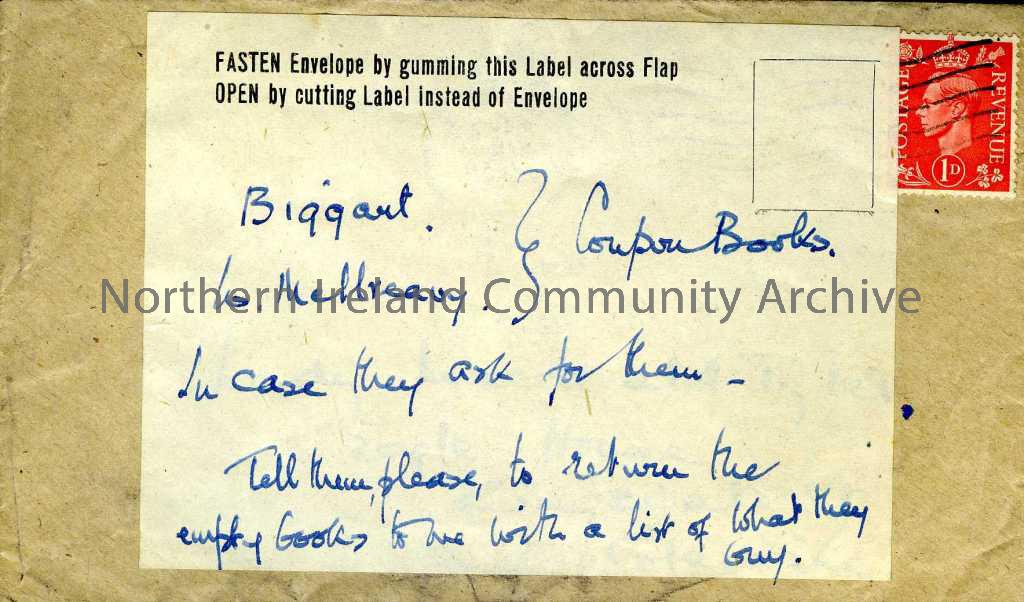 FASTEN Envelope by gumming this Label across Flap
OPEN by cutting Label instead of Envelope
POSTAGE REVENUE
1D
Biggart. } Coupon Books.
Northern Ireland Community Archive
In case they ask for them -
Tell them, please, to return the
empty books to me with a list of what they
buy.